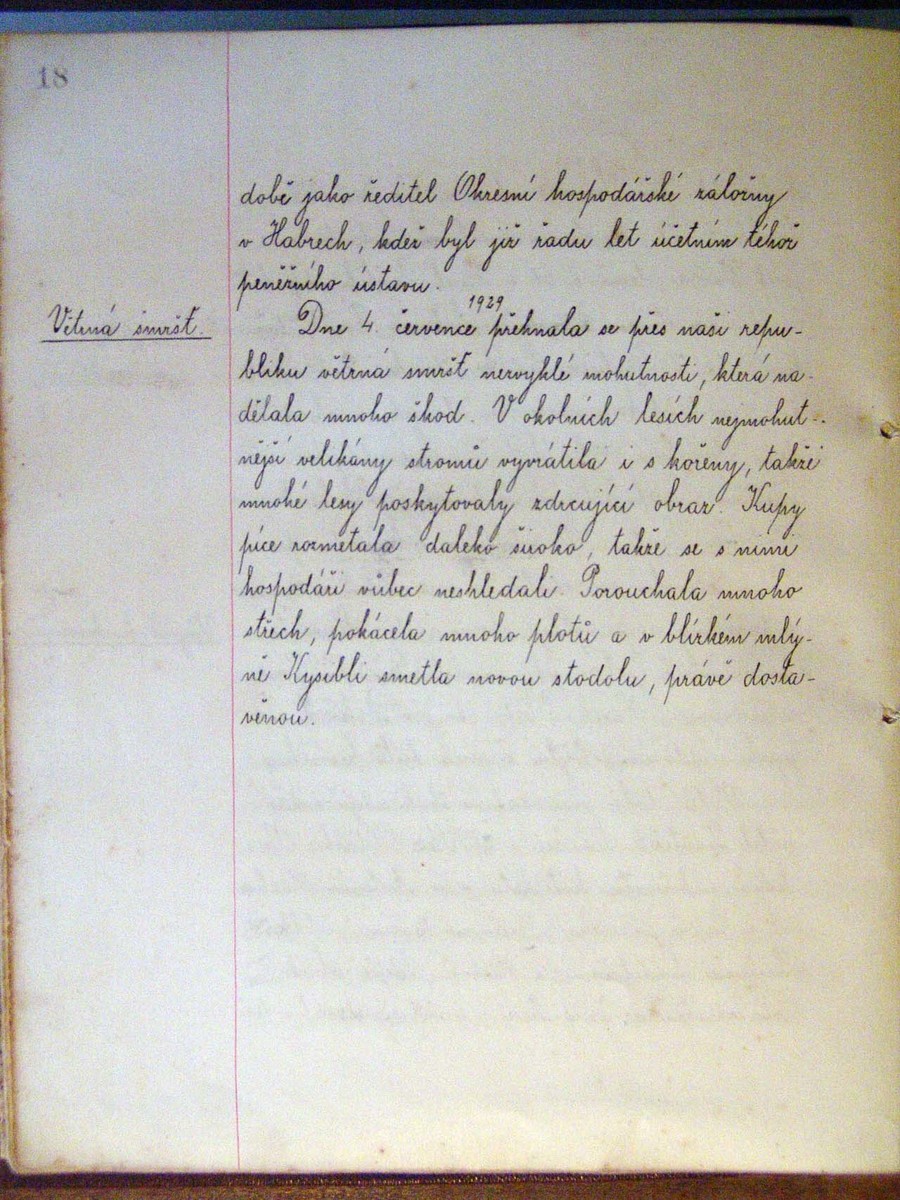 18
době jako ředitel Okresní hospodářské záložny
v Habrech, kdež byl již řadu let účetním téhož
peněžního ústavu.
Větrná smršť.
Dne 4. července 1929 přehnala se přes naši repu-
bliku větrná smršť nezvyklé mohutnosti, která na-
dělala mnoho škod. V okolních lesích nejmohut-
nější velikány stromů vyvrátila i s kořeny, takže
mnohé lesy poskytovaly zdrcující obraz. Kupy
píce rozmetala daleko široko, takže se s nimi
hospodáři vůbec neshledali. Porouchala mnoho
střech, pokácela mnoho plotů a v blízkém mlý-
ně Kysibli smetla novou stodolu, právě dosta-
věnou.